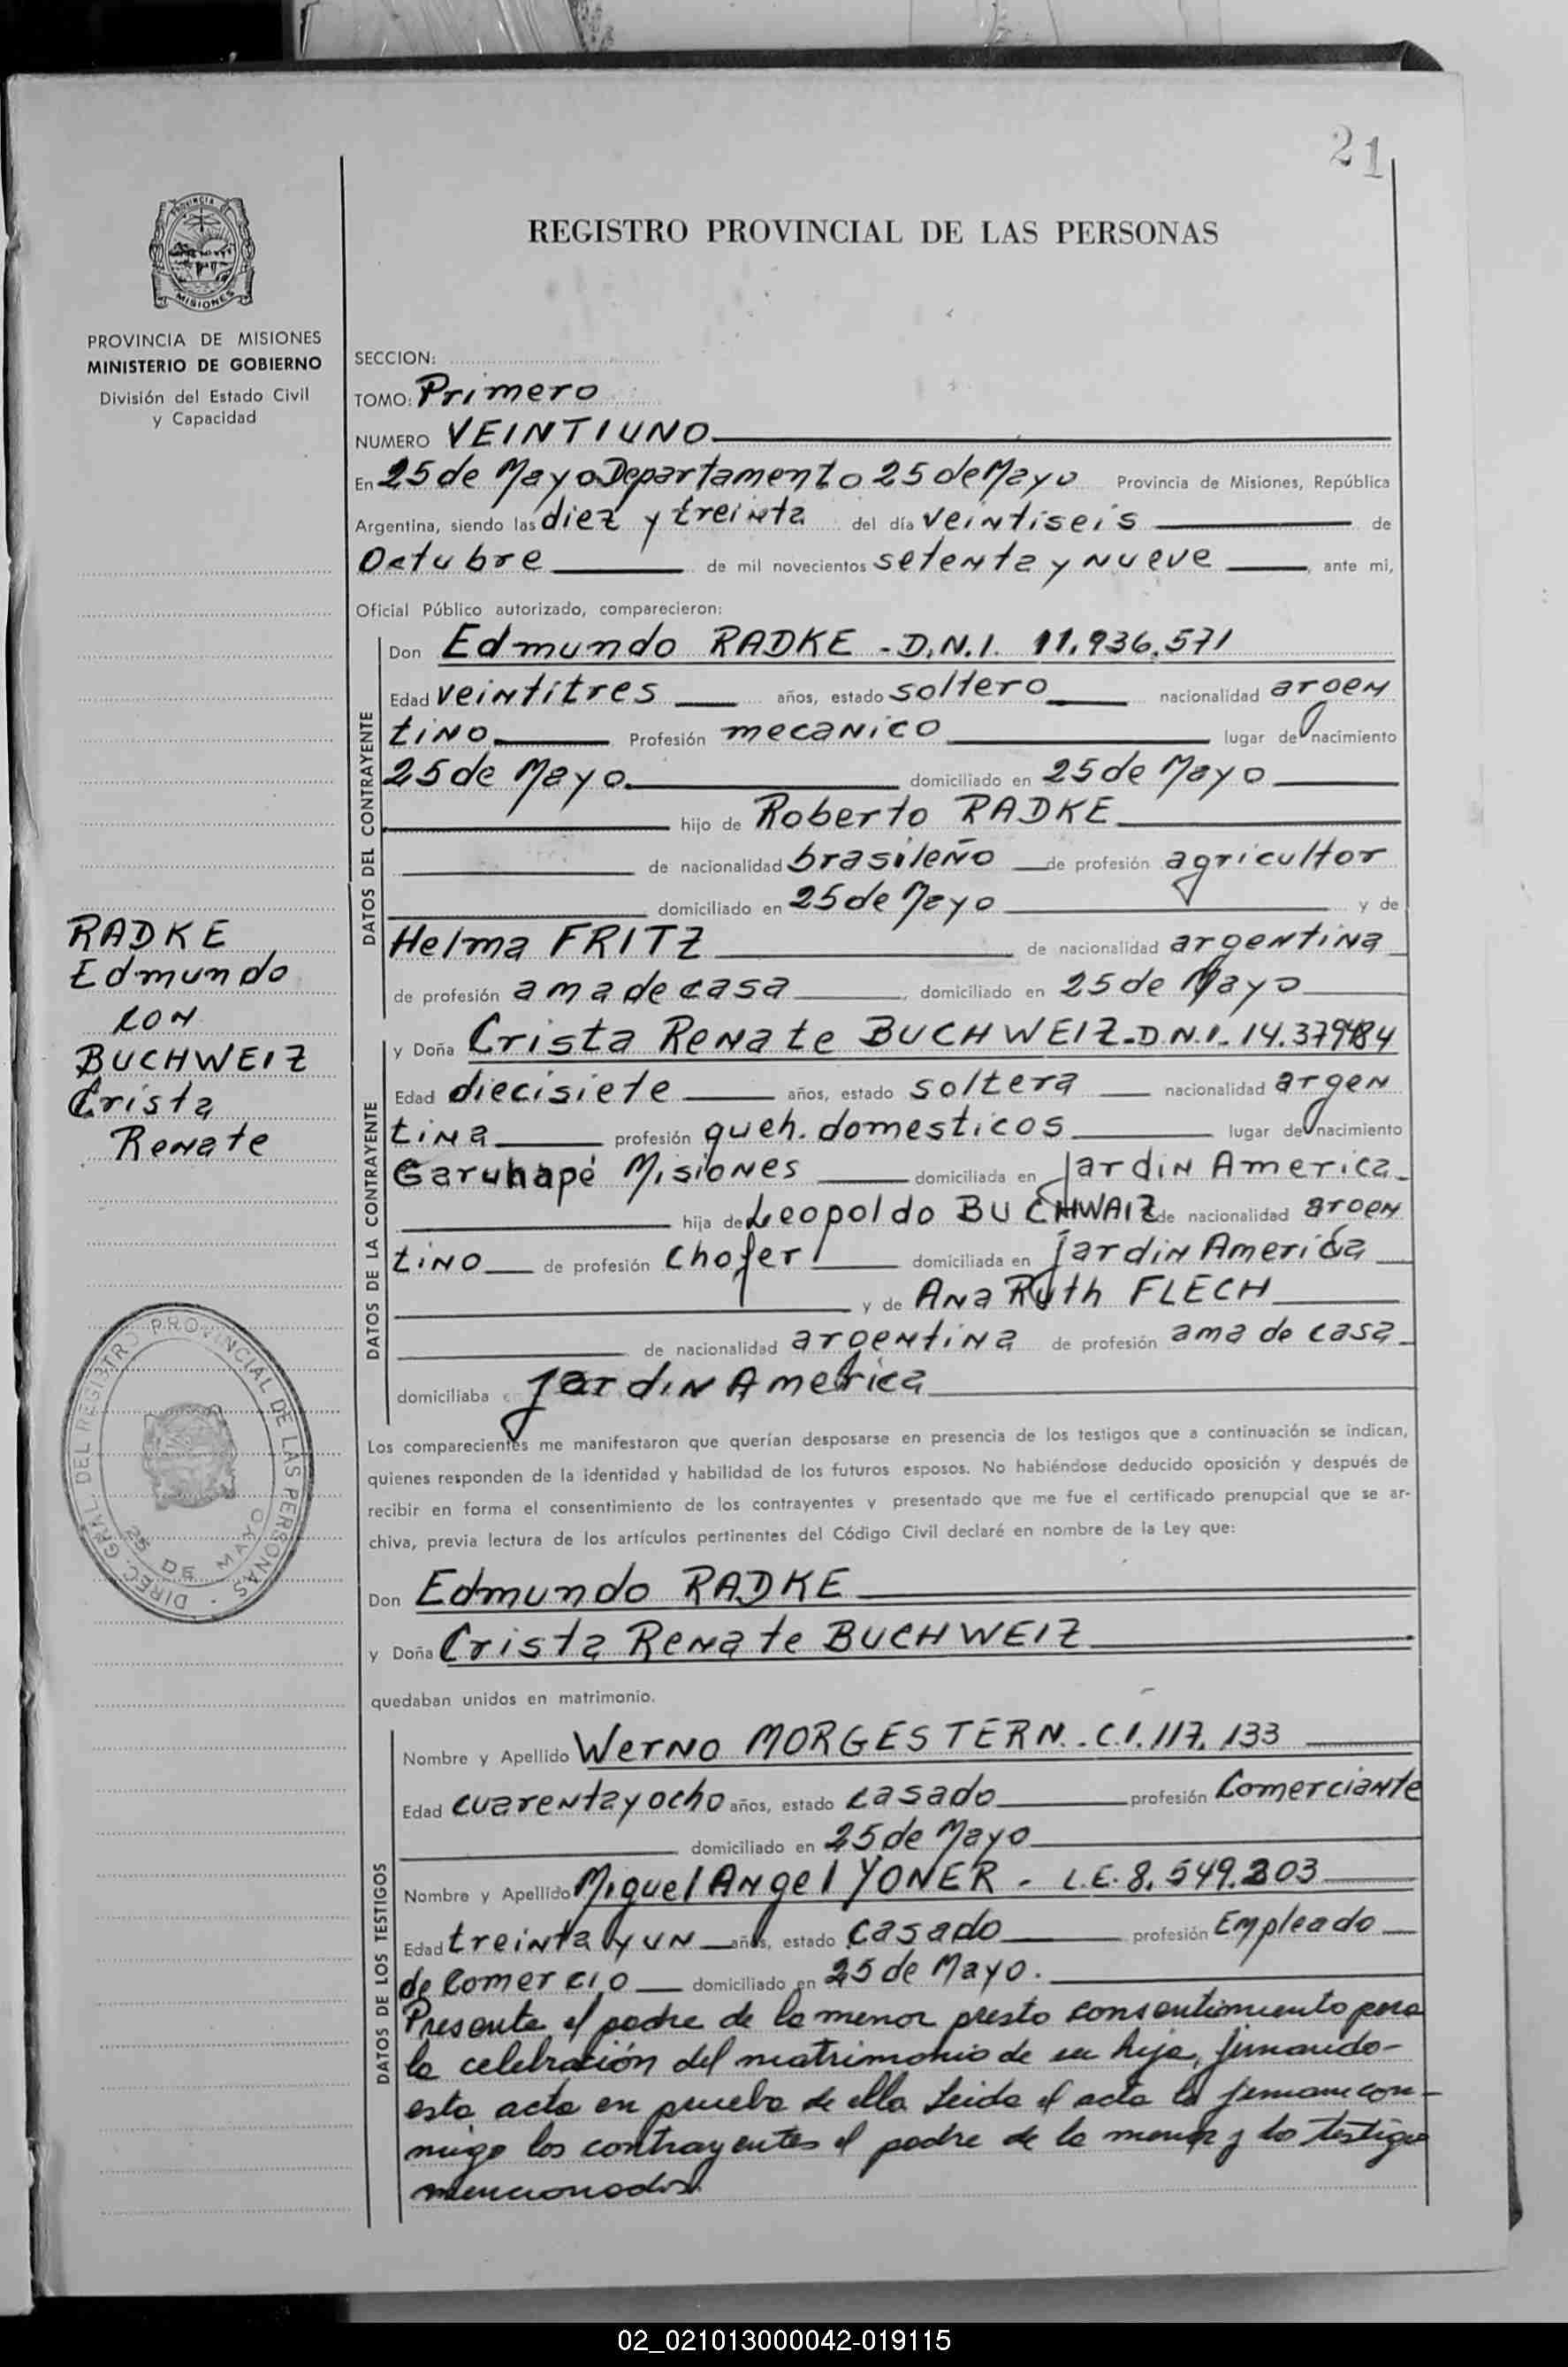 21
REGISTRO PROVINCIAL DE LAS PERSONAS
PROVINCIA DE MISIONES
MINISTERIO DE GOBIERNO
División del Estado Civil
y Capacidad
SECCION:
TOMO: Primero
NUMERO VEINTIUNO
En 25 de Mayo Departamento 25 de Mayo Provincia de Misiones, República
Argentina, siendo las diez y treinta del día veintiseis de
Octubre de mil novecientos setenta y nueve, ante mi,
Oficial Público autorizado, comparecieron:
DATOS DEL CONTRAYENTE
Don Edmundo RADKE - D.N.I. 11.936.571
Edad veintitres años, estado soltero nacionalidad argen
tino Profesión mecanico lugar de nacimiento
25 de Mayo domiciliado en 25 de Mayo
hijo de Roberto RADKE
de nacionalidad brasileño de profesión agricultor
domiciliado en 25 de Mayo y de
Helma FRITZ de nacionalidad argentina
de profesión ama de casa, domiciliado en 25 de Mayo
RADKE
Edmundo
con
BUCHWEIZ
Crista
Renate
DATOS DE LA CONTRAYENTE
y Doña Crista Renate BUCHWEIZ - D.N.I. 14.379484
Edad diecisiete años, estado soltera nacionalidad argen
tina profesión queh. domesticos lugar de nacimiento
Garuhapé Misiones domiciliada en Jardin America
hija de Leopoldo BUCHWAIZ de nacionalidad argen
tino de profesión chofer domiciliada en Jardin America
y de Ana Ruth FLECH
de nacionalidad argentina de profesión ama de casa
domiciliaba en Jardin America
DIREC. GRAL. DEL REGISTRO PROVINCIAL DE LAS PERSONAS
25 DE MAYO
Los comparecientes me manifestaron que querían desposarse en presencia de los testigos que a continuación se indican,
quienes responden de la identidad y habilidad de los futuros esposos. No habiéndose deducido oposición y después de
recibir en forma el consentimiento de los contrayentes y presentado que me fue el certificado prenupcial que se ar-
chiva, previa lectura de los artículos pertinentes del Código Civil declaré en nombre de la Ley que:
Don Edmundo RADKE
y Doña Crista Renate BUCHWEIZ
quedaban unidos en matrimonio.
DATOS DE LOS TESTIGOS
Nombre y Apellido Werno MORGESTERN. C.I. 117.133
Edad cuarenta y ocho años, estado casado profesión Comerciante
domiciliado en 25 de Mayo
Nombre y Apellido Miguel Angel YONER - L.E. 8.549.203
Edad treinta y un años, estado casado profesión Empleado
de Comercio domiciliado en 25 de Mayo.
Presente el padre de la menor presto consentimiento para
la celebración del matrimonio de su hija, firmando-
esta acta en prueba de ello. Leida el acta la firman con-
migo los contrayentes el padre de la menor y los testigos
mencionados.
02_021013000042-019115